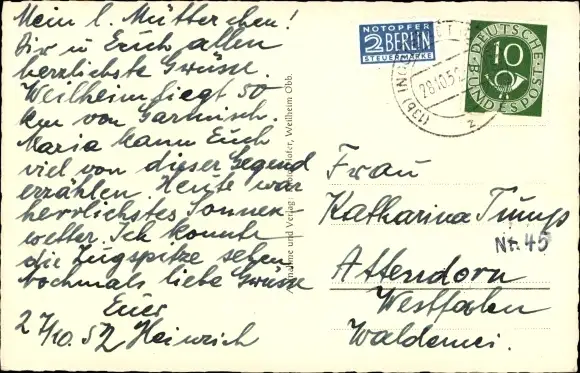 Mein l. Mütterchen!
Dir u Euch allen
herzlichste Grüsse.
Weilheim liegt 50
km von Garmisch.
Maria kann Euch
viel von dieser Gegend
erzählen. Heute war
herrlichstes Sonnen-
wetter. Ich konnte
die Zugspitze sehen
nochmals liebe Grüsse
Euer
27/10. 52 Heinrich
Aufnahme und Verlag: Weilheim Obb.
NOTOPFER
2 BERLIN
STEUERMARKE
(13b)
28.10.52
z
DEUTSCHE
BUNDESPOST
10
Frau
Katharina
Nr. 45
Attendorn
Westfalen
Waldemei.